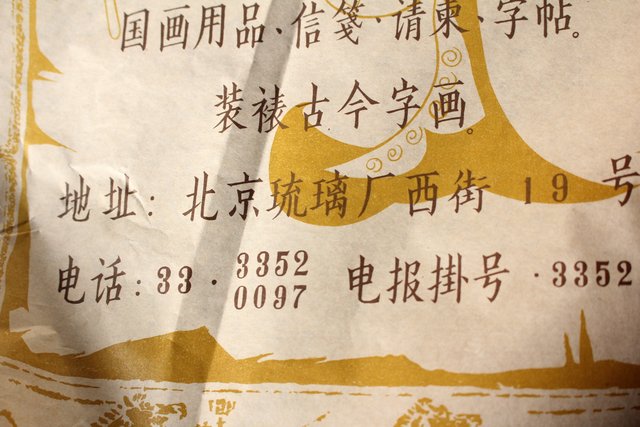 国画用品·信笺·请柬·字帖。
装裱古今字画。
地址：北京琉璃厂西街 19 号
电话：33·3352 0097 电报掛号·3352